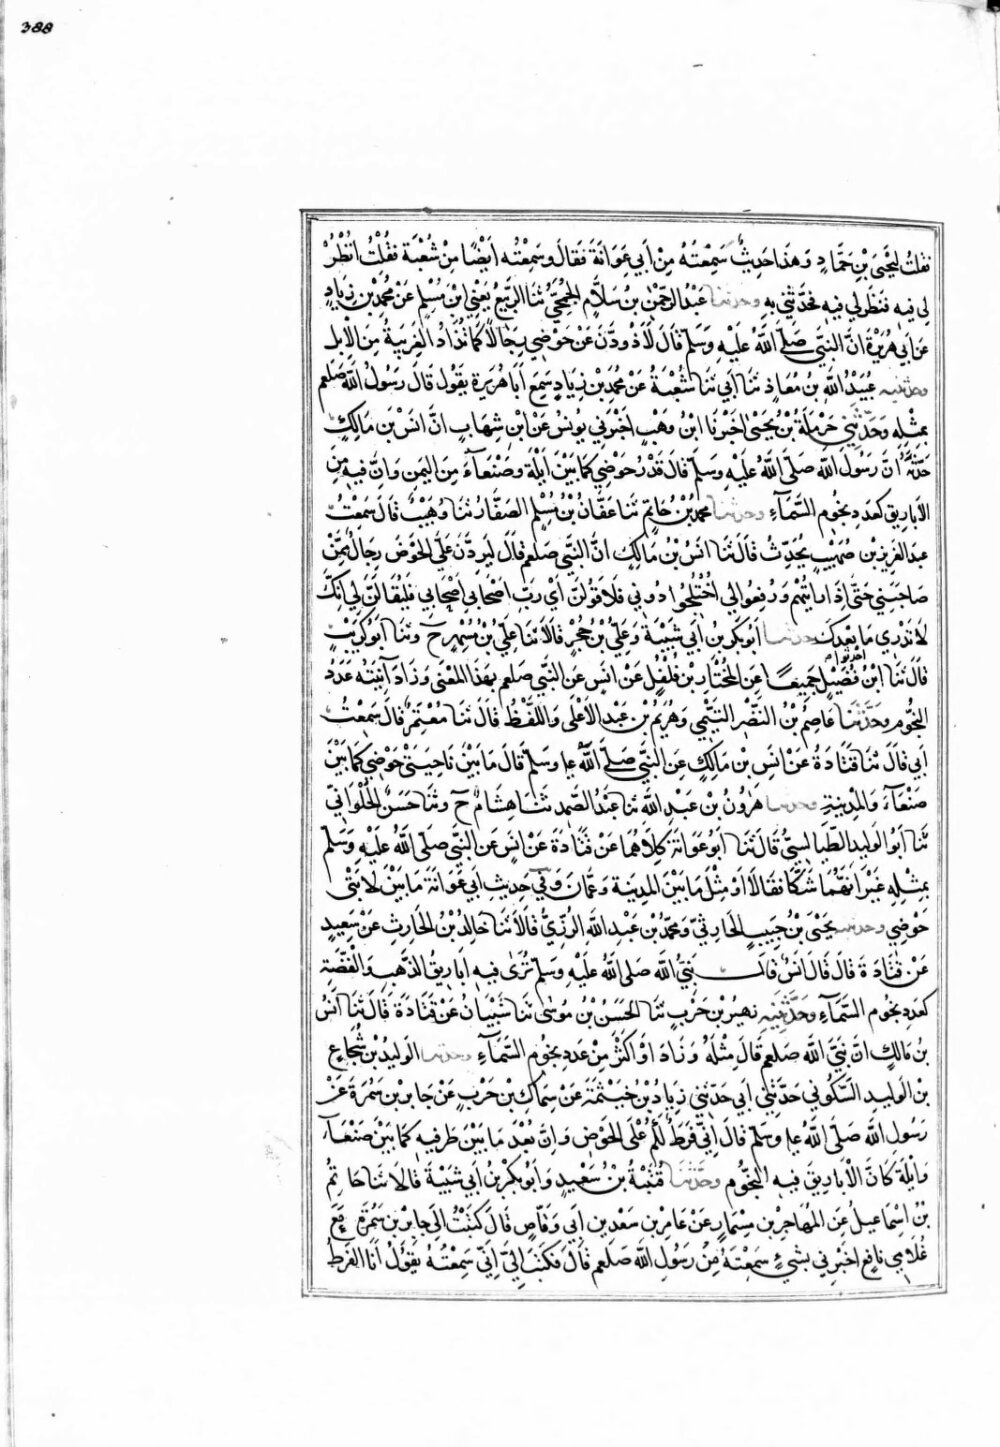 388
فقلت ليحيى بن حماد وهذا حديث سمعته من أبي عوانة فقال وسمعته أيضا من شعبة فقلت انظر
لي فيه فنظر لي فيه فحدثني به وحدثنا عبد الرحمن بن سلام الجمحي ثنا الربيع يعني ابن مسلم عن محمد بن زياد
عن أبي هريرة ان النبي صلى الله عليه وسلم قال لأذودن عن حوضي رجالا كما تذاد الغريبة من الابل
وحدثنيه عبيد الله بن معاذ ثنا أبي ثنا شعبة عن محمد بن زياد سمع أبا هريرة يقول قال رسول الله صلعم
بمثله وحدثني حرملة بن يحيى اخبرنا ابن وهب اخبرني يونس عن ابن شهاب ان انس بن مالك
حدثه ان رسول الله صلى الله عليه وسلم قال قدر حوضي كما بين أيلة وصنعاء من اليمن وان فيه من
الاباريق كعدد نجوم السماء وحدثنا محمد بن حاتم ثنا عفان بن مسلم الصفار ثنا وهيب قال سمعت
عبد العزيز بن صهيب يحدث قال ثنا انس بن مالك ان النبي صلعم قال ليردن علي الحوض رجال ممن
صاحبني حتى إذا رايتهم ورفعوا الي اختلجوا دوني فلاقولن أي رب اصحابي أصحابي فليقالن لي انك
لا تدري ما بعدك حدثنا أبو بكر بن أبي شيبة وعلي بن حجر قالا ثنا علي بن مسهر ح وثنا أبو كريب
احدثوا
قال ثنا ابن فضيل جميعا عن المختار بن فلفل عن انس عن النبي صلعم بهذا المعنى وزاد آنيته عدد
النجوم وحدثنا عاصم بن النضر التيمي وهريم بن عبد الأعلى واللفظ قال ثنا معتمر قال سمعت
أبي قال ثنا قتادة عن انس بن مالك عن النبي صلى الله عليه وسلم قال ما بين ناحيتي حوضي كما بين
صنعاء والمدينة وحدثنا هرون بن عبد الله ثنا عبد الصمد ثنا هشام ح وثنا حسن الحلواني
ثنا أبو الوليد الطيالسي قال ثنا أبو عوانة كلاهما عن قتادة عن انس عن النبي صلى الله عليه وسلم
بمثله غير انهما شكا فقالا او مثل ما بين المدينة وعمان وفي حديث ابي عوانة ما بين لابتي
حوضي وحدثني يحيى بن حبيب الحارثي ومحمد بن عبد الله الرزي قالا ثنا خالد بن الحارث عن سعيد
عن قتادة قال قال انس قال نبي الله صلى الله عليه وسلم ترى فيه اباريق الذهب والفضة
كعدد نجوم السماء وحدثنيه زهير بن حرب ثنا الحسن بن موسى ثنا شيبان عن قتادة قال ثنا انس
بن مالك ان نبي الله صلعم قال مثله وزاد او اكثر من عدد نجوم السماء وحدثنا الوليد بن شجاع
بن الوليد السكوني حدثني أبي حدثني زياد بن خيثمة عن سماك بن حرب عن جابر بن سمرة عن
رسول الله صلى الله عليه وسلم قال اني فرط لكم على الحوض وان بعد ما بين طرفيه كما بين صنعاء
وايلة كان الأباريق فيه النجوم وحدثنا قتيبة بن سعيد وأبو بكر بن أبي شيبة قالا ثنا حاتم
بن اسماعيل عن المهاجر بن مسمار عن عامر بن سعد بن ابي وقاص قال كتبت الي جابر بن سمرة مع
غلامي نافع اخبرني بشيء سمعته من رسول الله صلعم قال فكتب الي اني سمعته يقول أنا الفرط